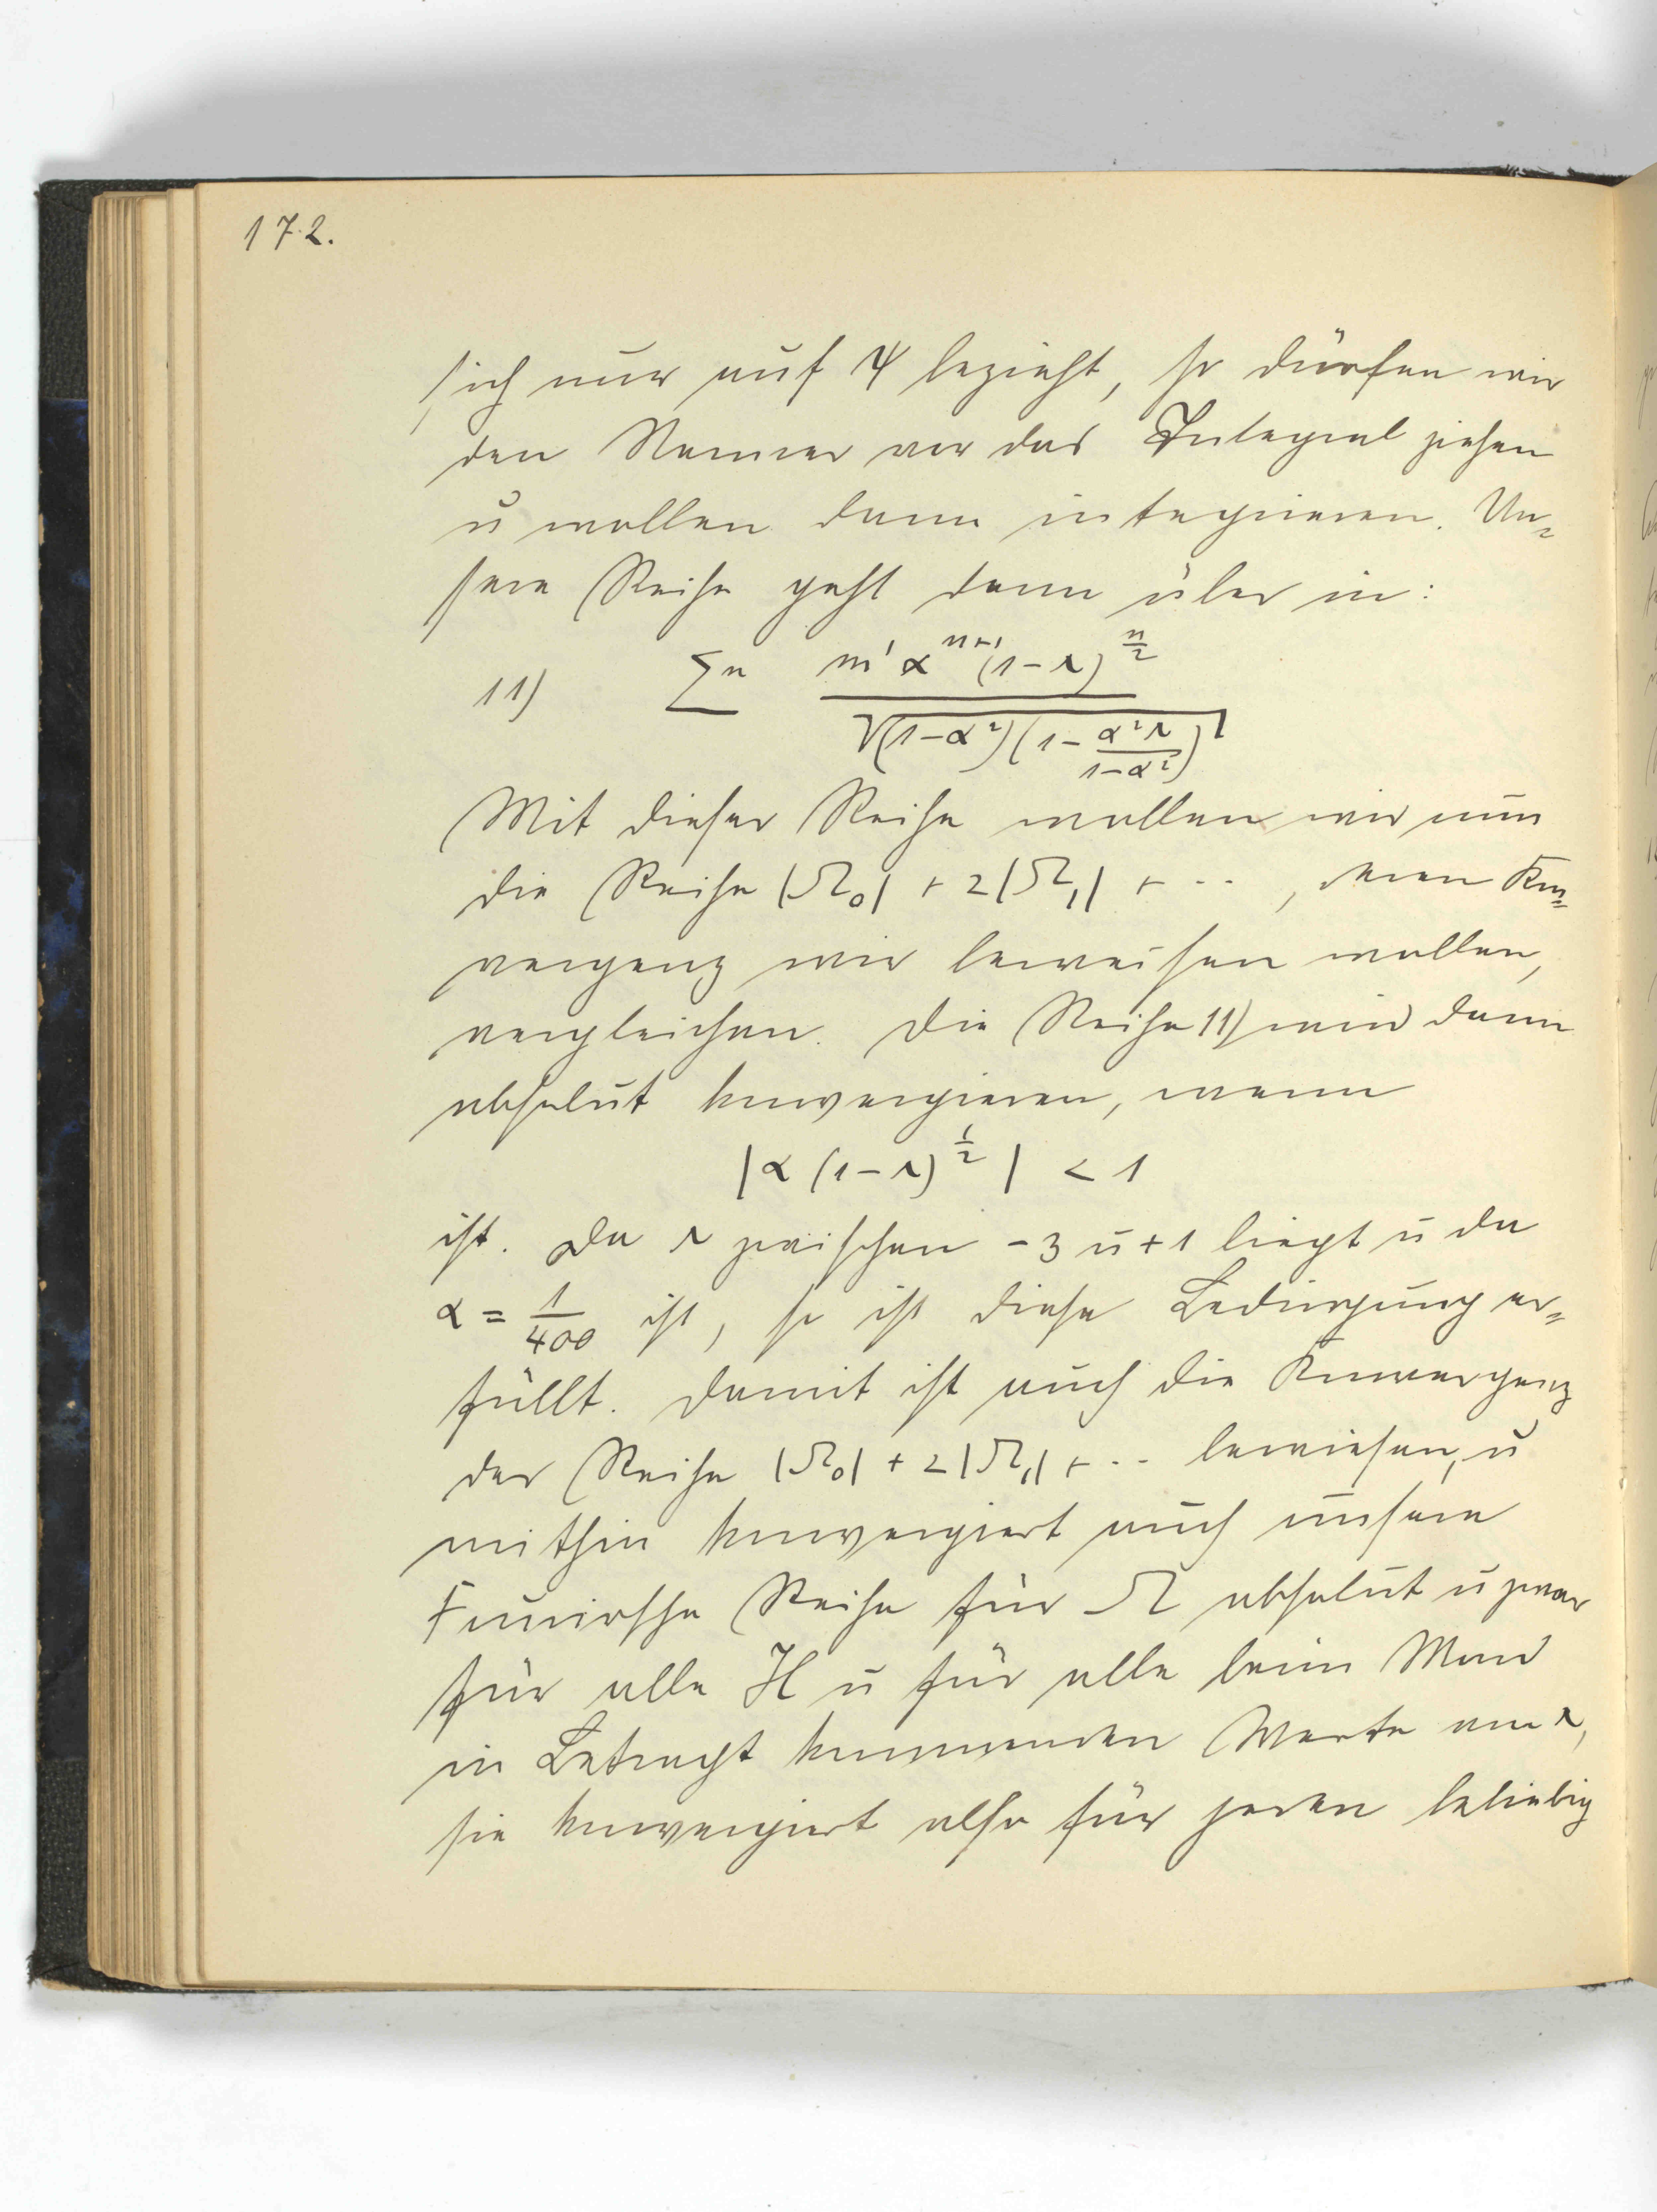 172.
sich nur auf ψ bezieht, so dürfen wir
den Nenner vor das Integral ziehen
u wollen dann integrieren. Un=
sere Reihe geht dann über in:
11) $\sum^n \frac{m' \alpha^{n+1} (1-s)^{\frac{n}{2}}}{\sqrt{(1-\alpha^2)(1-\frac{\alpha^2 s}{1-\alpha^2})}}$
Mit dieser Reihe wollen wir nun
die Reihe |Ω₀| + 2|Ω₁| + ‥ , deren Kon=
vergenz wir beweisen wollen,
vergleichen. Die Reihe 11) wird dann
absolut konvergieren, wenn
$|\alpha (1-s)^{\frac{1}{2}}| < 1$
ist. Da s zwischen -3 u +1 liegt u da
$\alpha = \frac{1}{400}$ ist, so ist diese Bedingung er=
füllt. Damit ist auch die Konvergenz
der Reihe |Ω₀| + 2|Ω₁| + ‥ bewiesen, u
mithin konvergiert auch unsere
Fouriersche Reihe für Ω absolut u zwar
für alle H u für alle beim Mond
in Betracht kommenden Werte von s,
sie konvergiert also für jeden beliebig